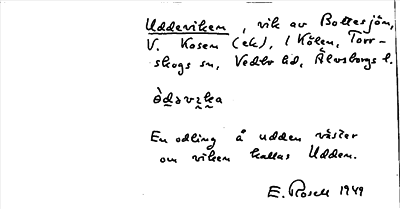 Uddeviken, vik av Bottesjön,
V. Kosen (ek), i Kölen, Torr-
skogs sn, Vedbo hd, Älvsborgs l.
En odling å udden väster
om viken kallas Udden.
E. Rosell 1949